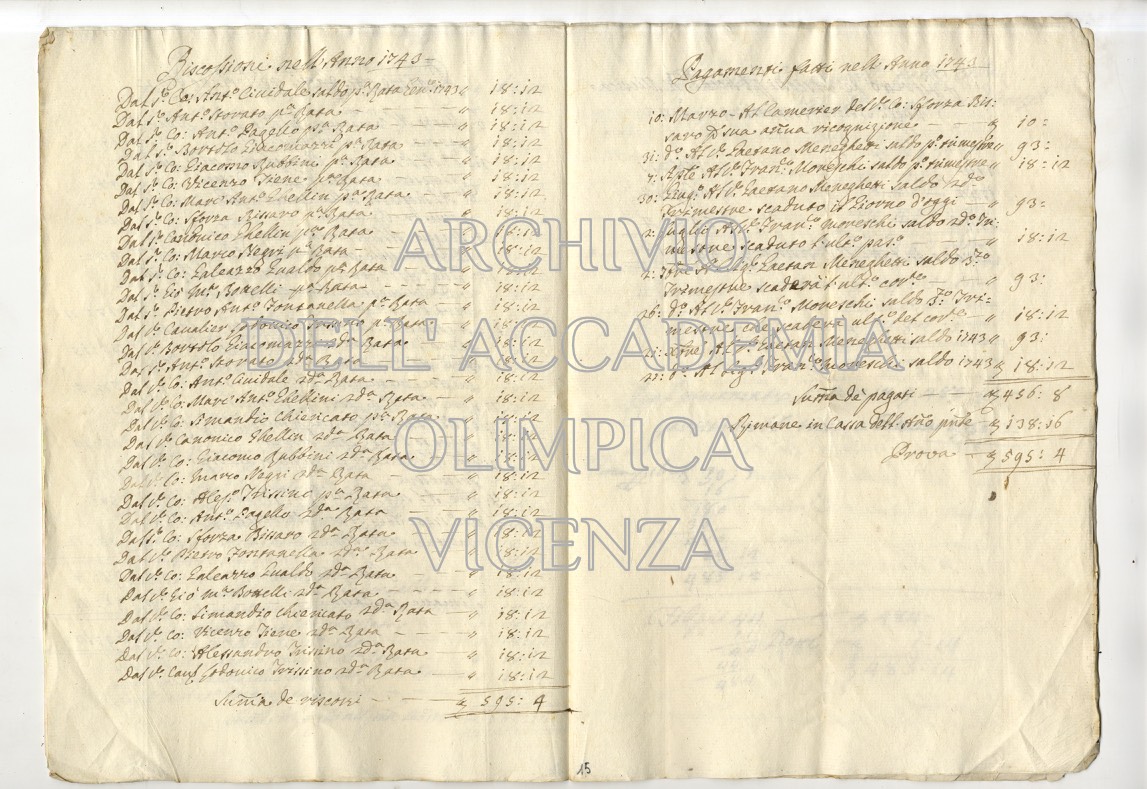 Riscossioni nell Anno 1743
Dal Sr. Co: Anto. Cividale saldo pa. Rata 1743 " 18:12
Dal Sr. Anto. Storato pa. Rata " 18:12
Dal Sr. Co: Anto. Pagello pa. Rata " 18:12
Dal Sr. Bortolo Giacomazzi pa. Rata " 18:12
Dal Sr. Co: Giacomo Rubbini pa. Rata " 18:12
Dal Sr. Co: Vicenzo Tiene pa. Rata " 18:12
Dal Sr. Co: Marc Anto. Ghellin pa. Rata " 18:12
Dal Sr. Co: Sforza Bissaro pa. Rata " 18:12
Dal Sr. Canonico Ghellin pa. Rata " 18:12
Dal Sr. Co: Marco Negri pa. Rata " 18:12
Dal Sr. Co: Galeazzo Gualdo pa. Rata " 18:12
Dal Sr. Gio Ma. Bonelli pa. Rata " 18:12
Dal Sr. Pietro Anto. Fontanella pa. Rata " 18:12
Dal Sr. Cavalier Lodovico Trissino pa. Rata " 18:12
Dal Sr. Bortolo Giacomazzi 2da. Rata " 18:12
Dal Sr. Anto. Storato 2da. Rata " 18:12
Dal Sr. Co: Anto. Cividale 2da. Rata " 18:12
Dal Sr. Co: Marc Anto. Ghellini 2da. Rata " 18:12
Dal Sr. Co: Simandio Chiericato pa. Rata " 18:12
Dal Sr. Canonico Ghellin 2da. Rata " 18:12
Dal Sr. Co: Giacomo Rubbini 2da. Rata " 18:12
Dal Sr. Co: Marco Negri 2da. Rata " 18:12
Dal Sr. Co: Aleso. Trissino pa. Rata " 18:12
Dal Sr. Co: Anto. Pagello 2da. Rata " 18:12
Dal Sr. Co: Sforza Bissaro 2da. Rata " 18:12
Dal Sr. Pietro Fontanella 2da. Rata " 18:12
Dal Sr. Co: Galeazzo Gualdo 2da. Rata " 18:12
Dal Sr. Gio Ma. Bonelli 2da. Rata " 18:12
Dal Sr. Co: Simandio Chiericato 2da. Rata " 18:12
Dal Sr. Co: Vicenzo Tiene 2da. Rata " 18:12
Dal Sr. Co: Alessandro Trissino 2da. Rata " 18:12
Dal Sr. Cavr. Lodovico Trissino 2da. Rata " 18:12
Summa de riscossi 595: 4
Pagamenti fatti nell Anno 1743
10: Marzo. Al Camerier del Sr. Co: Sforza Bis-
saro p sua annua ricognizione 10:
31: do. Al Sr. Gaetano Meneghetti saldo po. trimestre " 93:
Aple Al Sr. Frano. Moneschi saldo po. trimestre " 18:12
30: Giugo. Al Sr. Gaetano Meneghetti Saldo 2do.
Trimestre scaduto il Giorno d'oggi " 93:
2: Luglio Al Sr. Frano. Moneschi saldo 2do. Tri-
mestre scaduto l'ulto. pas. " 18:12
Al Sigr. Gaetan Meneghetti saldo 3zo.
Trimestre scaderà l'ulto. core. " 93:
26: do. Al Sr. Frano. Moneschi saldo 3o. Tri-
mestre che scaderà ulto. del core. " 18:12
21: Al Sr. Gaetan Meneghetti saldo 1743 " 93:
do. Al Sigr. Frano. Moneschi saldo 1743 18:12
Summa de pagati 456: 8
Rimane in Cassa dell Año pnte 138:16
Prova 595: 4
15
ARCHIVIO
DELL' ACCADEMIA
OLIMPICA
VICENZA